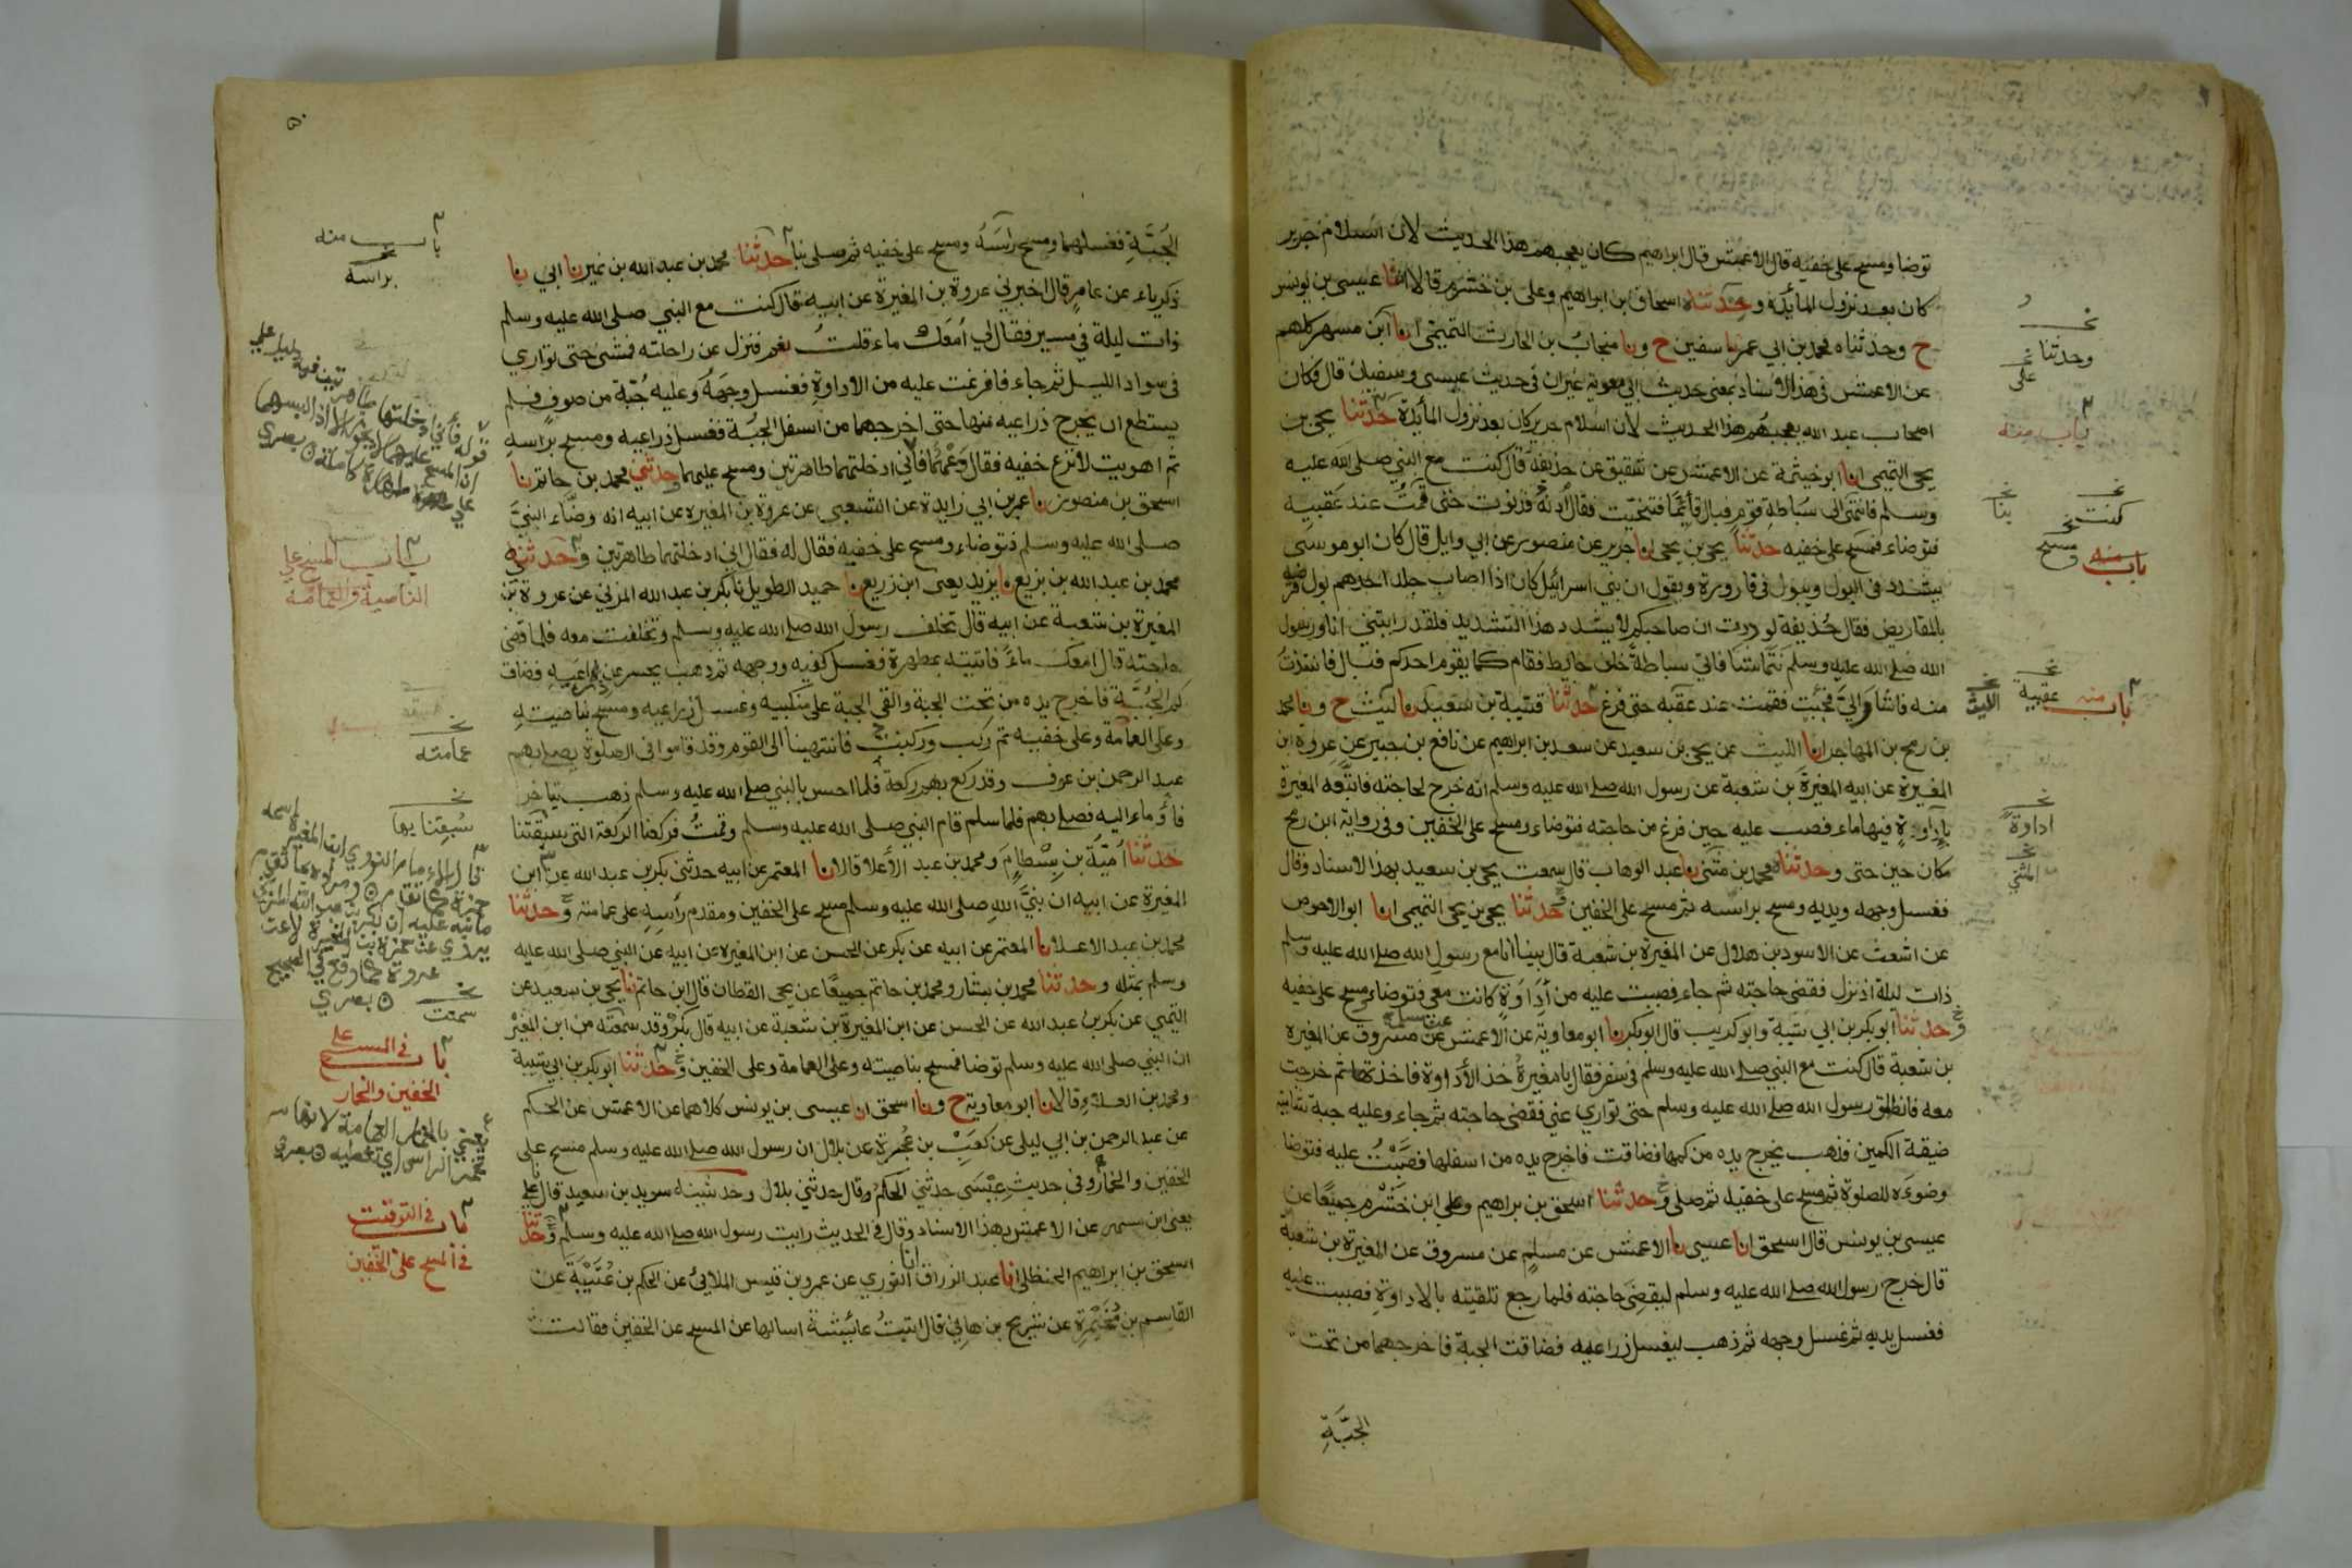 توضا ومسح على خفيه قال الاعمش قال ابراهيم كان يعجبهم هذا الحديث لان اسلام جرير
كان بعد نزول المائدة وحدثناه اسحاق بن ابراهيم وعلى بن خشرم قالا انا عيسى بن يونس
ح وحدثناه محمد بن ابي عمر نا سفين ح ونا منجاب بن الحارث التميمى انا ابن مسهر كلهم
عن الاعمش فى هذا الاسناد بمعنى حديث ابي معوية غير ان فى حديث عيسى وسفيان قال فكان
اصحاب عبد الله يعجبهم هذا الحديث لان اسلام جرير كان بعد نزول المأيدة حدثنا يحيى بن
يحيى التميمى انا ابو خيثمة عن الاعمش عن شقيق عن حذيفة قال كنت مع النبي صلى الله عليه
وسلم فانتهى الى سباطة قوم فبال قأيما فتنحيت فقال ادنه فدنوت حتى قمت عند عقبيه
فتوضاء فمسح على خفيه حدثنا يحيى بن يحيى انا جرير عن منصور عن ابي وايل قال كان ابو موسى
يشدد فى البول ويبول فى قارورة ويقول ان بني اسرائيل كان اذا اصاب جلد احدهم بول قرضه
بالمقاريض فقال حذيفة لوددت ان صاحبكم لا يشدد هذا التشديد فلقد رايتني انا ورسول
الله صلى الله عليه وسلم نتماشا فاتى سباطة خلف حايط فقام كما يقوم احدكم فبال فانتبذت
منه فاشار الي فجئت فقمت عند عقبه حتى فرغ حدثنا قتيبة بن سعيد نا ليث ح ونا محمد
بن رمح بن المهاجر انا الليث عن يحيى بن سعيد عن سعد بن ابراهيم عن نافع بن جبير عن عروة ابن
المغيرة عن ابيه المغيرة بن شعبة عن رسول الله صلى الله عليه وسلم انه خرج لحاجته فاتبعه المغيرة
باداوة فيها ماء فصب عليه حين فرغ من حاجته فتوضاء ومسح على الخفين وفى رواية ابن رمح
مكان حين حتى وحدثناه محمد بن مثنى نا عبد الوهاب قال سمعت يحيى بن سعيد بهذا الاسناد وقال
فغسل وجهه ويديه ومسح براسه ثم مسح على الخفين وحدثنا يحيى بن يحيى التميمى انا ابو الاحوص
عن اشعث عن الاسود بن هلال عن المغيرة بن شعبة قال بينا انا مع رسول الله صلى الله عليه وسلم
ذات ليلة اذ نزل فقضى حاجته ثم جاء فصببت عليه من اداوة كانت معى فتوضاء ومسح على خفيه
وحدثنا ابو بكر بن ابي شيبة وابو كريب قال ابو بكر نا ابو معاوية عن الاعمش عن مسلم عن مسروق عن المغيرة
بن شعبة قال كنت مع النبي صلى الله عليه وسلم فى سفر فقال يا مغيرة خذ الأداوة فاخذتها ثم خرجت
معه فانطلق رسول الله صلى الله عليه وسلم حتى توارى عني فقضى حاجته ثم جاء وعليه جبة شامية
ضيقة الكمين فذهب يخرج يده من كمها فضاقت فاخرج يده من اسفلها فصببت عليه فتوضا
وضوءه للصلوة ثم مسح على خفيه ثم صلى وحدثنا اسحق بن براهيم وعلى ابن خشرم جميعا عن
عيسى بن يونس قال اسحق انا عيسى نا الاعمش عن مسلم عن مسروق عن المغيرة بن شعبة
قال خرج رسول الله صلى الله عليه وسلم ليقضى حاجته فلما رجع تلقيته بالاداوة فصببت عليه
فغسل يديه ثم غسل وجهه ثم ذهب ليغسل ذراعيه فضاقت الجبة فاخرجهما من تحت
الجبة
وحدثنا
على
باب منه
كنت
بنا
ومسح
باب منه
باب منه
عقبيه
الليث
اداوة
المثني
الجبة فغسلهما ومسح راسه ومسح على خفيه ثم صلى بنا حدثنا محمد بن عبد الله بن نمير نا ابي نا
زكرياء عن عامر قال اخبرني عروة بن المغيرة عن ابيه قال كنت مع النبي صلى الله عليه وسلم
ذات ليلة في مسير فقال لي امعك ماء قلت نعم فنزل عن راحلته فمشى حتى توارى
فى سواد الليل ثم جاء فافرغت عليه من الاداوة فغسل وجهه وعليه جبة من صوف فلم
يستطع ان يخرج ذراعيه منها حتى اخرجهما من اسفل الجبة فغسل ذراعيه ومسح براسه
ثم اهويت لانزع خفيه فقال دعهما فاني ادخلتهما طاهرتين ومسح عليهما وحدثني محمد بن حاتم نا
اسحق بن منصور نا عمر بن ابي زايدة عن الشعبي عن عروة بن المغيرة عن ابيه انه وضاء النبي
صلى الله عليه وسلم فتوضاء ومسح على خفيه فقال له فقال اني ادخلتهما طاهرتين وحدثني
محمد بن عبد الله بن بزيع نا يزيد يعنى ابن زريع نا حميد الطويل نا بكر بن عبد الله المزني عن عروة بن
المغيرة بن شعبة عن ابيه قال تخلف رسول الله صلى الله عليه وسلم وتخلفت معه فلما قضى
حاجته قال امعك ماء فاتيته بمطهرة فغسل كفيه ووجهه ثم ذهب يحسر عن ذراعيه فضاق
كم الجبة فاخرج يده من تحت الجبة والقى الجبة على منكبيه وغسل ذراعيه ومسح بناصيته
وعلى العمامة وعلى خفيه ثم ركب وركبت فانتهينا الى القوم وقد قاموا فى الصلوة يصلى بهم
عبد الرحمن بن عوف وقد ركع بهم ركعة فلما احس بالنبي صلى الله عليه وسلم ذهب يتاخر
فأوماء اليه فصلى بهم فلما سلم قام النبي صلى الله عليه وسلم وقمت فركعنا الركعة التى سبقتنا
حدثنا امية بن بسطام ومحمد بن عبد الأعلا قالا نا المعتمر عن ابيه حدثني بكر بن عبد الله عن ابن
المغيرة عن ابيه ان نبي الله صلى الله عليه وسلم مسح على الخفين ومقدم رأسه على عمامته وحدثنا
محمد بن عبد الاعلا نا المعتمر عن ابيه عن بكر عن الحسن عن ابن المغيرة عن ابيه عن النبي صلى الله عليه
وسلم بمثله وحدثنا محمد بن بشار ومحمد بن حاتم جميعا عن يحيى القطان قال ابن حاتم نا يحيى بن سعيد عن
التيمي عن بكر بن عبد الله عن الحسن عن ابن المغيرة بن شعبة عن ابيه قال بكر وقد سمعته من ابن المغيرة
ان النبي صلى الله عليه وسلم توضا فمسح بناصيته وعلى العمامة وعلى الخفين وحدثنا ابو بكر بن ابي شيبة
ومحمد بن العلاء قالا نا ابو معاوية ح ونا اسحق انا عيسى بن يونس كلاهما عن الاعمش عن الحكم
عن عبد الرحمن بن ابي ليلى عن كعب بن عجرة عن بلال ان رسول الله صلى الله عليه وسلم مسح على
الخفين والخمار وفى حديث عيسى حدثني الحكم وقال حدثني بلال وحدثنيه سويد بن سعيد قال نا علي
يعنى ابن مسهر عن الاعمش بهذا الاسناد وقال فى الحديث رايت رسول الله صلى الله عليه وسلم وحدثنا
اسحق بن ابراهيم الحنظلى انا عبد الرزاق انا الثوري عن عمرو بن قيس الملائي عن الحكم بن عتيبة عن
القاسم بن مخيمرة عن شريح بن هانئ قال اتيت عائشة اسالها عن المسح عن الخفين فقالت
باب منه
براسه
قوله فأني ادخلتهما طاهرتين فيه دليل على
ان المسح عليهما لا يجوز الا اذا لبسهما
على طهارة كاملة
باب المسح على
الناصية والعمامة
عمامته
سبقتنا بها
سمعت
باب في المسح على
الخفين والخمار
يعني بالخمار العمامة لانها
تخمر الراس اي تغطيه
باب في التوقيت
في المسح على الخفين